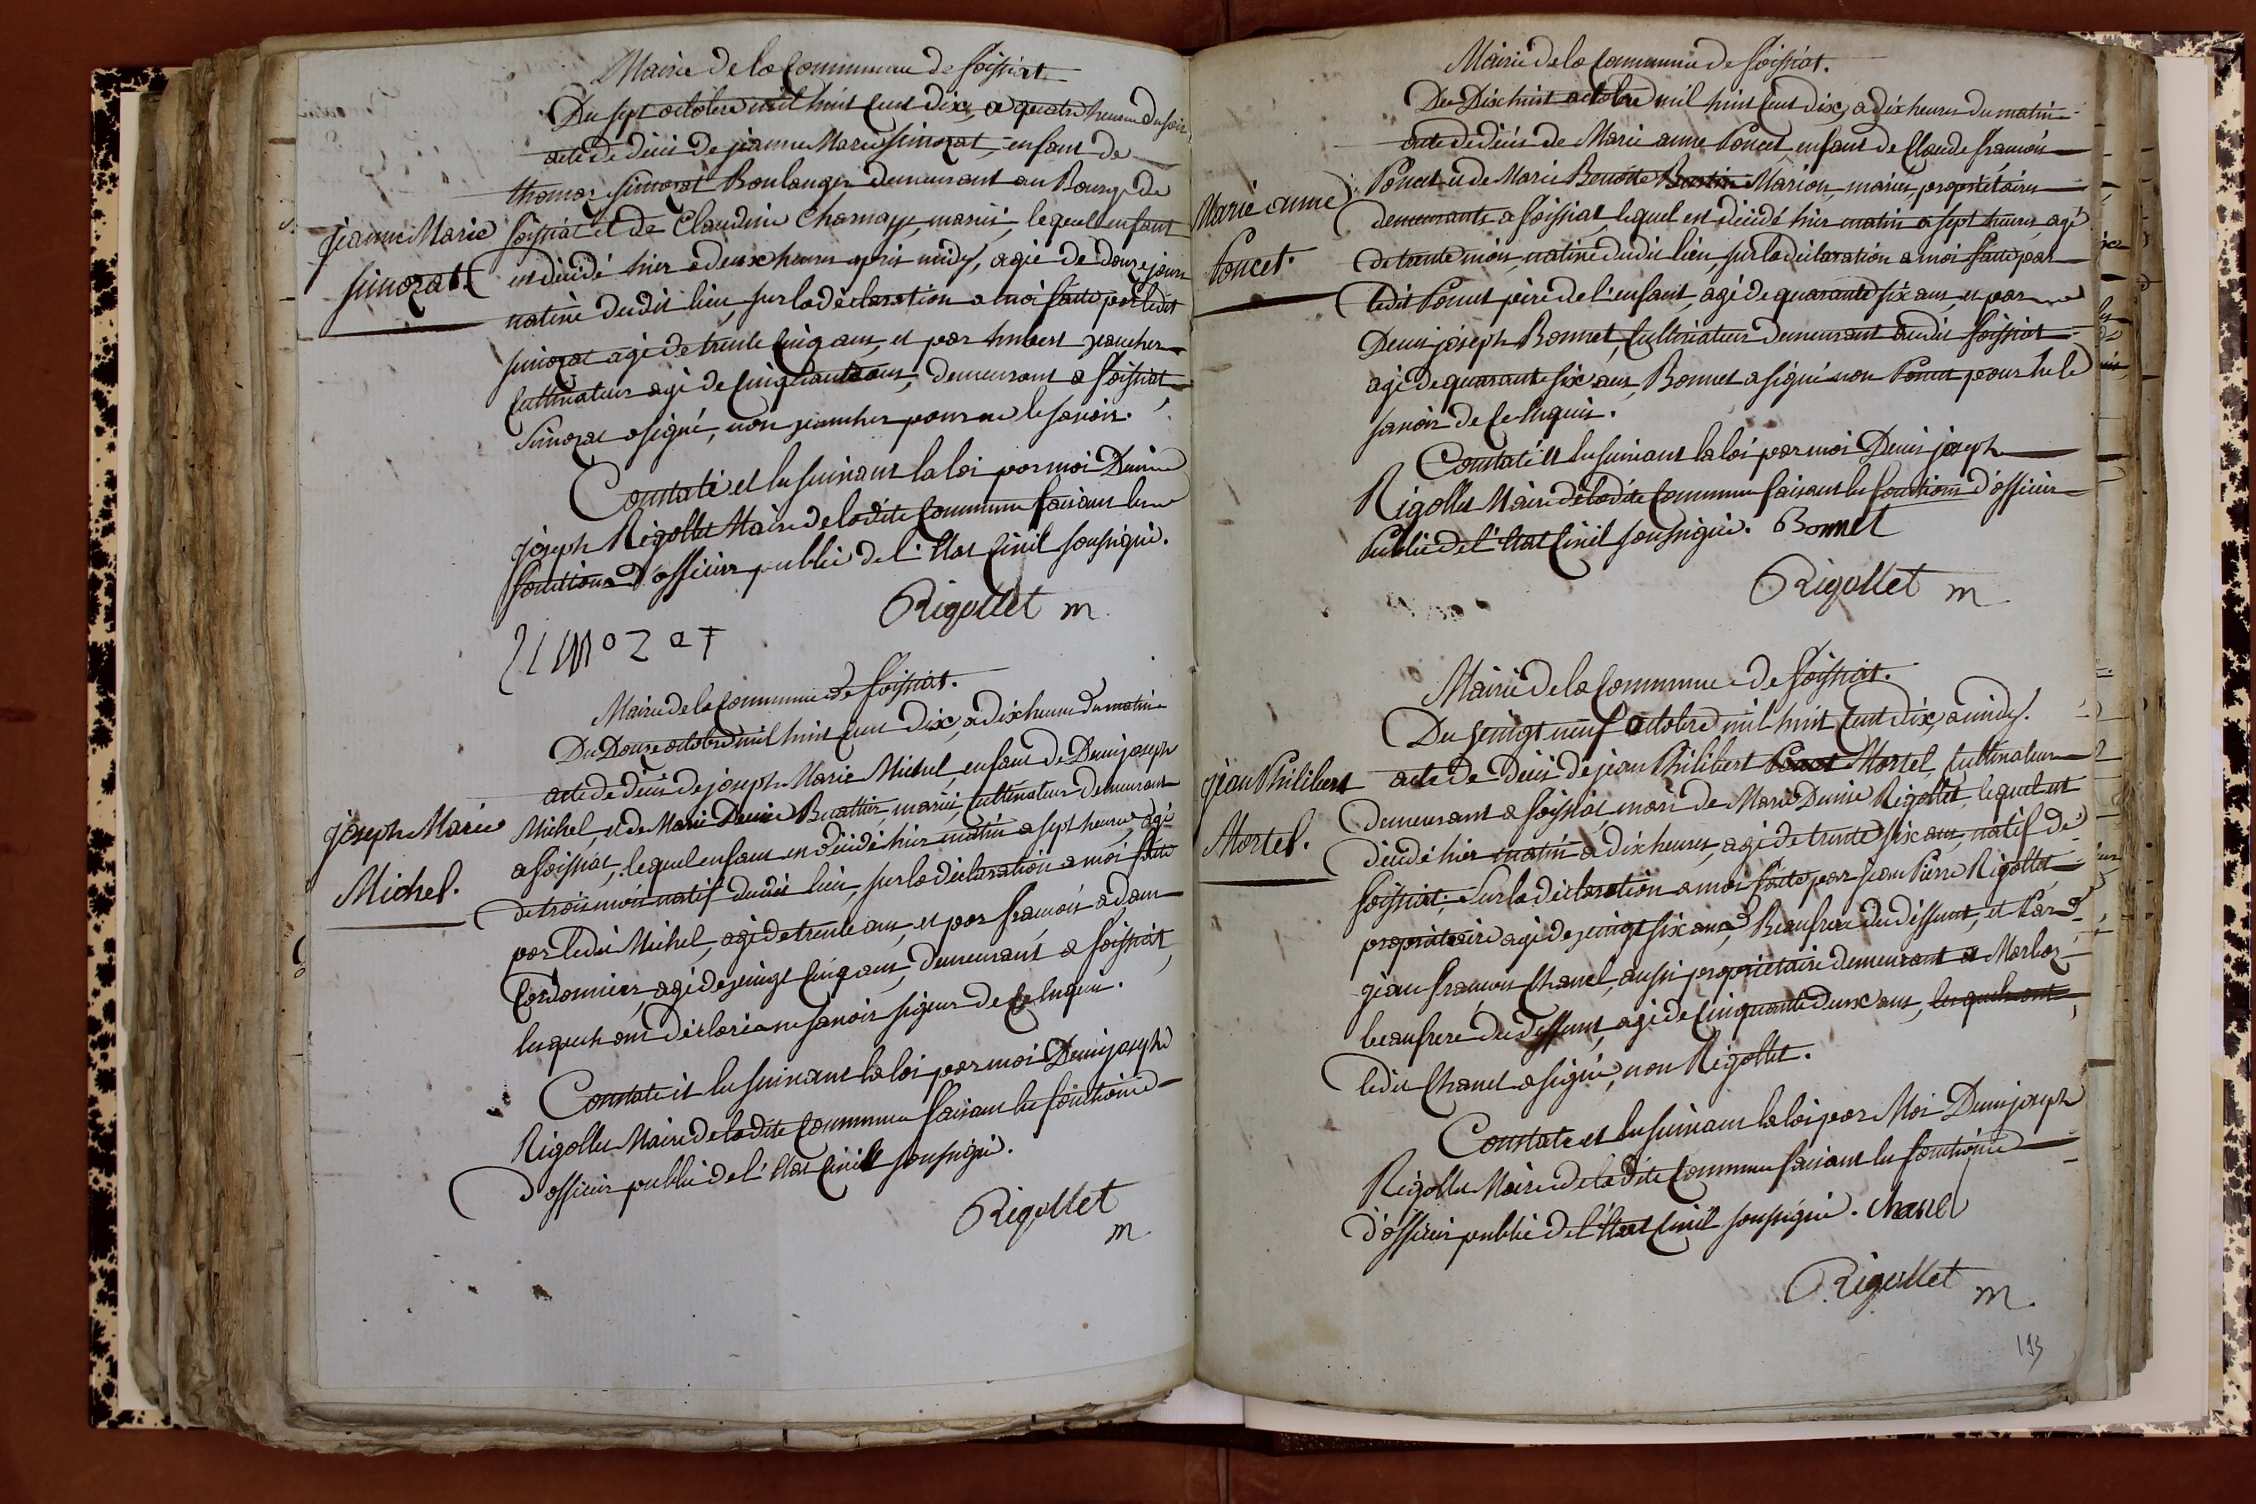 Mairie de la Commune de foissiat
Du sept octobre mil huit Cent dix, a quatre heures du soir
acte de décès de jeanne Marie Simozat, enfant de
thomas Simozat Boulanger demeurant au Bourg de
jeanne Marie
Simozat.
foissiat et de Claudine Charnay, mariés, lequel enfant
est décédé hier a deux heures après midy, agé de douze jours
native dudit lieu, sur la déclaration a moi faite par ledit
Simozat agé de trente Cinq ans, et par humbert
Cultivateur agé de Cinquante ans, demeurant a foissiat
Simozat a signé, non pour ne le savoir.
Constaté et lu suivant la loi par moi Denis
joseph Rigollet Maire de ladite Commune faisant les
fonctions d'officier public de l'Etat Civil soussigné.
Rigollet m
Simozat
Mairie de la Commune de foissiat.
Du Douze octobre mil huit Cent Dix, a dix heures du matin
acte de décès de joseph Marie Michel, enfant de Denis joseph
joseph Marie
Michel.
Michel, et de Marie Denise Buattier, mariés, Cultivateurs demeurant
a foissiat, lequel enfant est décédé hier matin a sept heures, agé
de trois mois natif dudit lieu, sur la déclaration a moi faite
par ledit Michel, agé de trente ans, et par francois adam
Cordonnier, agé de vingt Cinq ans, demeurant a foissiat,
lesquels ont déclaré ne savoir signer de Ce Enquis.
Constaté et lu suivant la loi par moi Denis joseph
Rigollet Maire de ladite Commune faisant les fonctions
d'officier public de l'Etat Civil soussigné.
Rigollet
m
Mairie de la Commune de foissiat.
Du Dix huit octobre mil huit Cent dix, a dix heures du matin
acte de décès de Marie anne Poncet enfant de Claude francois
Marie anne
Poncet.
Poncet et de Marie Benoite Marion, mariés, propriétaires
demeurants a foissiat, lequel est décédé hier matin a sept heures, agé
de trente mois, native dudit lieu, sur la déclaration a moi faite par
ledit Poncet père de l'enfant, agé de quarante six ans, et par
Denis joseph Bonnet, Cultivateur demeurant audit foissiat
agé de quarante six ans, Bonnet a signé non Poncet pour ne le
savoir de Ce Enquis.
Constaté et lu suivant la loi par moi Denis joseph
Rigollet Maire de ladite Commune faisant les fonctions d'officier
Public de l'Etat Civil soussigné. Bonnet
Rigollet m
Mairie de la Commune de foissiat.
Du vingt neuf octobre mil huit Cent dix, a midy.
jean Philibert
Mortel.
acte de décès de jean Philibert Mortel, Cultivateur
demeurant a foissiat, mari de Marie Denise Rigollet, lequel est
décédé hier matin a dix heures, agé de trente six ans, natif de
foissiat, Sur la déclaration a moi faite par jean Pierre Rigollet
propriétaire agé de vingt six ans, Beaufrere du deffunt, et Par
jean francois Chanel, aussi propriétaire demeurant a Marboz
beaufrere du deffunt, agé de Cinquante deux ans, lesquels ont
ledit Chanel a signé, non Rigollet.
Constaté et lu suivant la loi par Moi Denis joseph
Rigollet Maire de ladite Commune faisant les fonctions
d'officier public de l'Etat Civil soussigné. Chanel
Rigollet
m.
193